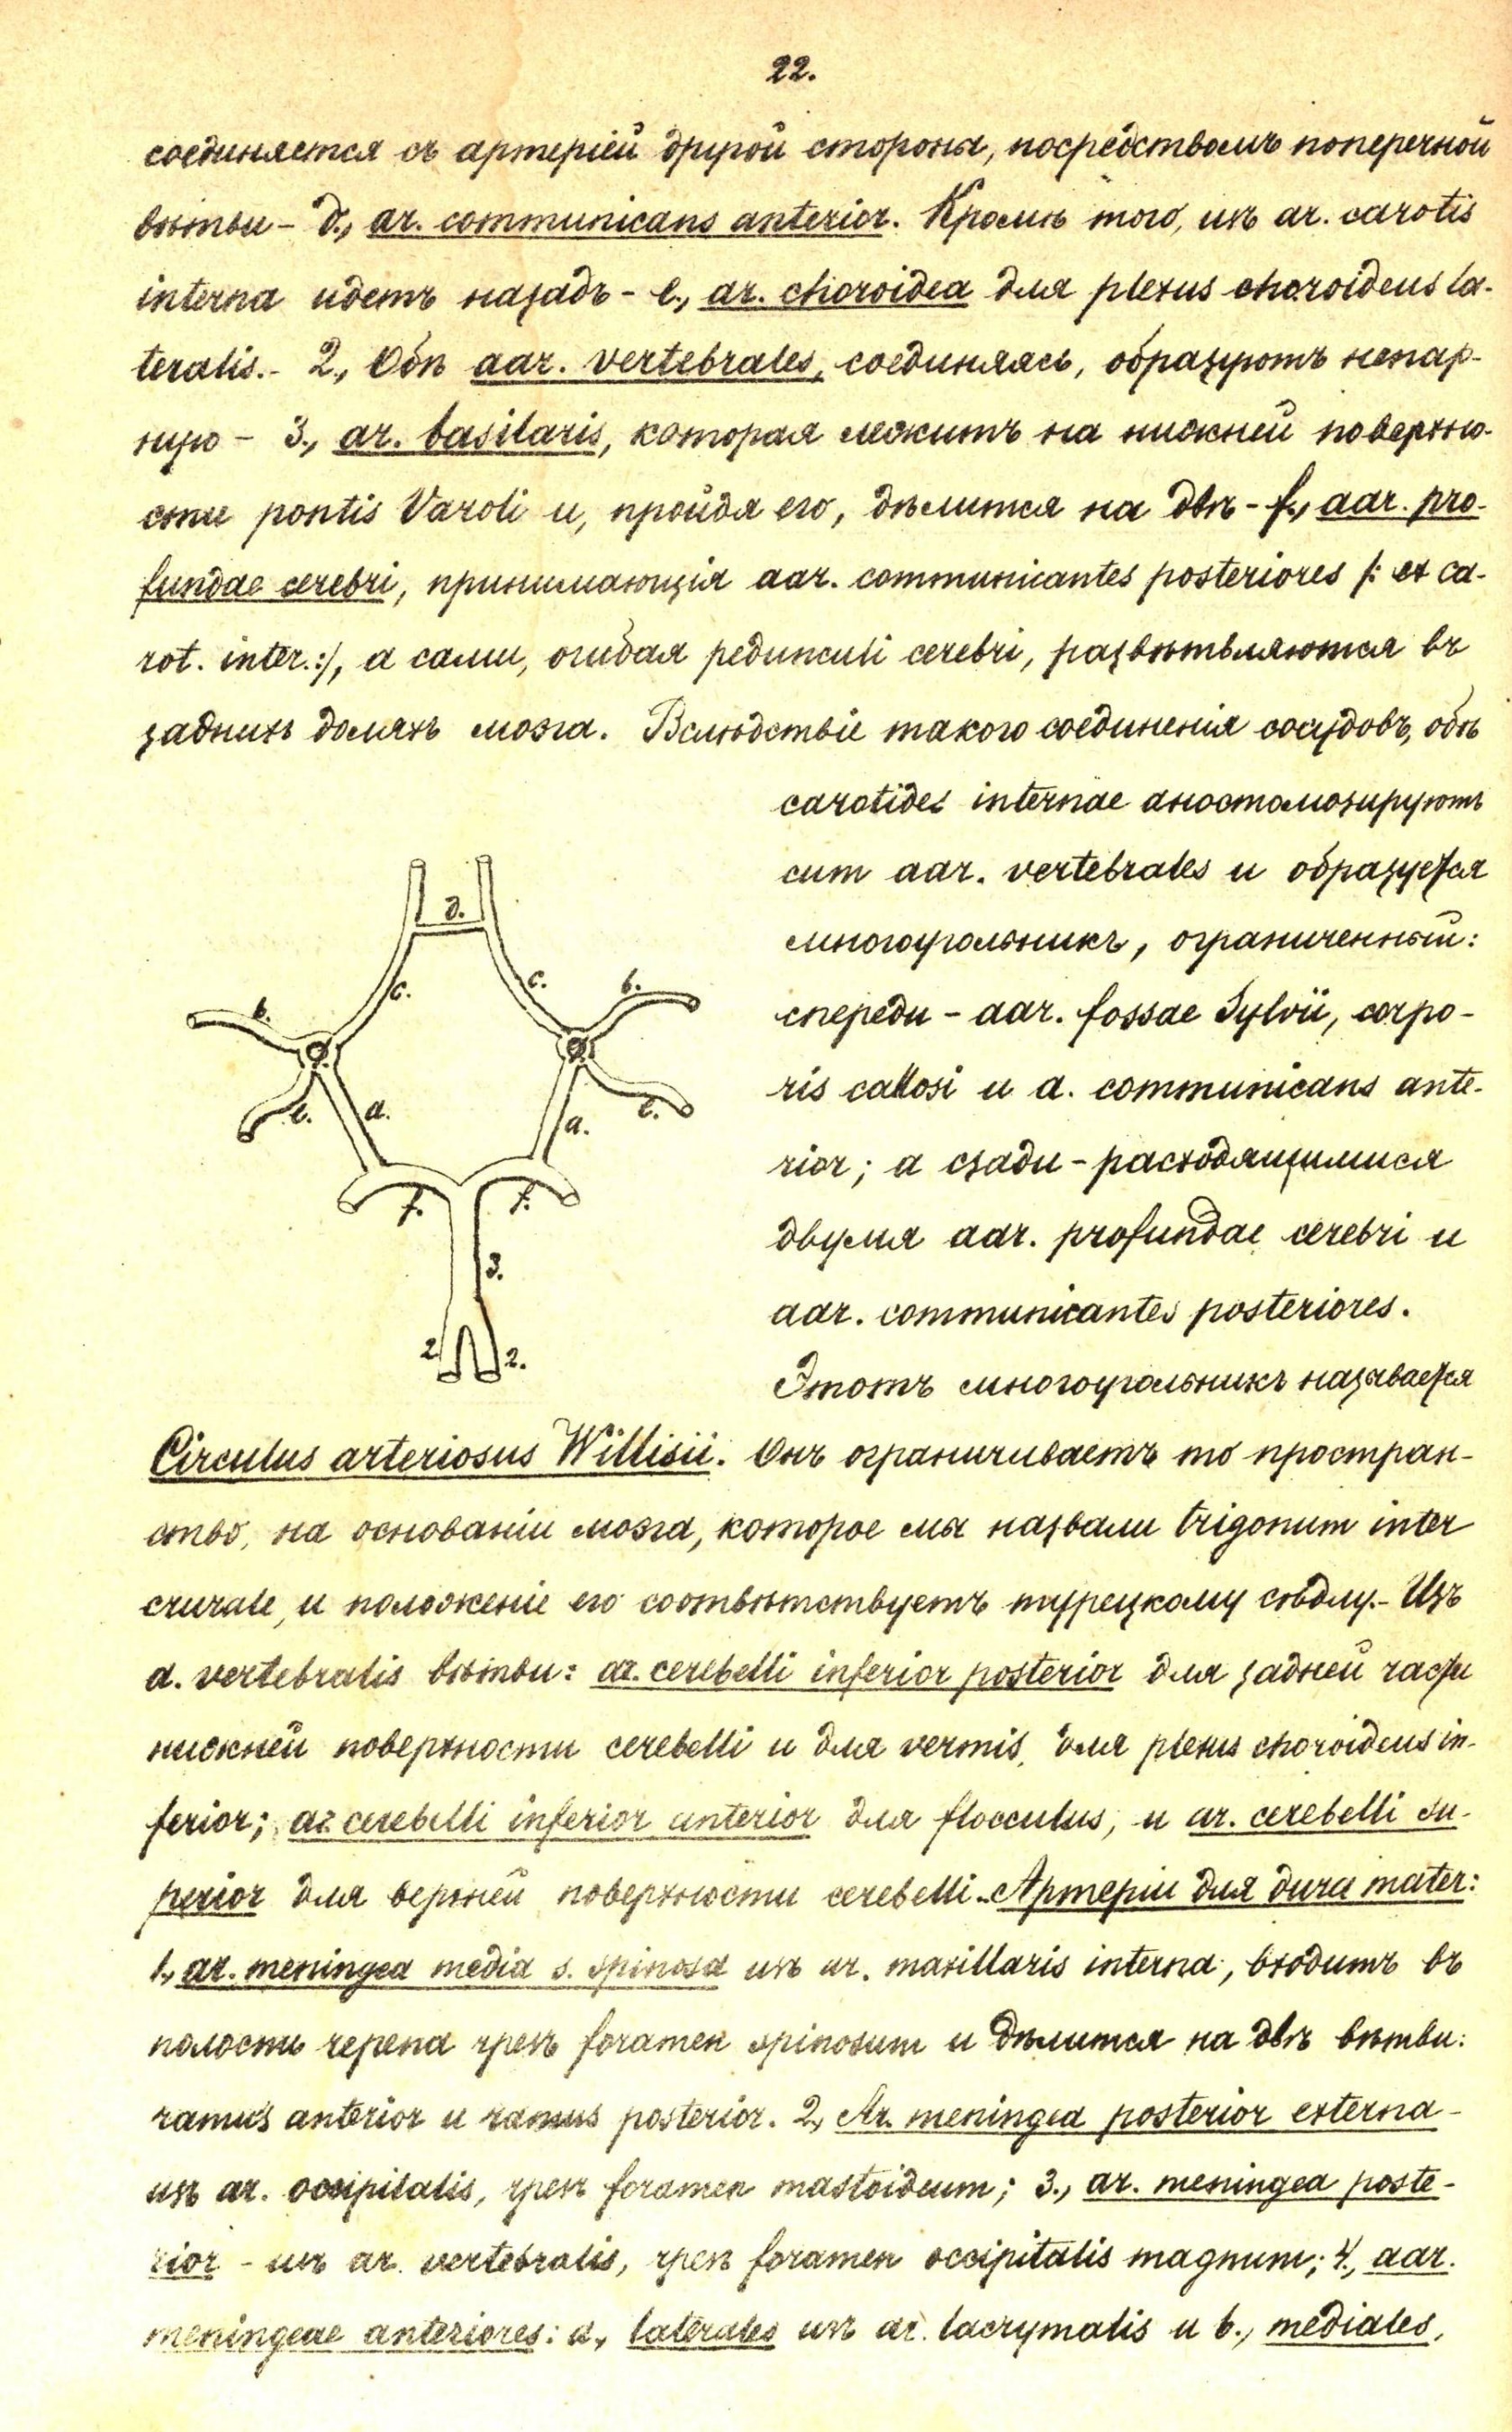 22.
соединяется съ артеріей другой стороны, посредствомъ поперечной
вѣтви – d., ar. communicans anterior. Кромѣ того, изъ ar. carotis
interna идетъ назадъ – e., ar. choroidea для plexus choroideus la-
teralis.- 2., Обѣ aar. vertebrales, соединяясь, образуютъ непар-
ную – 3., ar. basilaris, которая лежитъ на нижней поверхно-
сти pontis Varoli и, пройдя его, дѣлится на двѣ – f., aar. pro-
fundae cerebri, принимающія aar. communicantes posteriores /: ex ca-
rot. inter.:/, а сами, огибая pedunculi cerebri, развѣтвляются въ
заднихъ доляхъ мозга. Вслѣдствіе такого соединенія сосудовъ, обѣ
carotides internae аностомозируютъ
cum aar. vertebrales и образуется
многоугольникъ, ограниченный:
спереди – aar. fossae Sylvii, corpo-
ris callosi и a. communicans ante-
rior; а сзади – расходящимися
двумя aar. profundae cerebri и
aar. communicantes posteriores.
Этотъ многоугольникъ называется
d.
c. c.
b. b.
e. a. a. e.
f. f.
3.
2. 2.
Circulus arteriosus Willisii. Онъ ограничиваетъ то простран-
ство, на основаніи мозга, которое мы назвали trigonum inter
crurale, и положеніе его соотвѣтствуетъ турецкому сѣдлу.- Изъ
a. vertebralis вѣтви: ar. cerebelli inferior posterior для задней части
нижней поверхности cerebelli и для vermis, для plexus choroideus in-
ferior; ar. cerebelli inferior anterior для flocculus, и ar. cerebelli su-
perior для верхней поверхности cerebelli.- Артеріи для dura mater:
1., ar. meningea media s. spinosa изъ ar. maxillaris interna, входитъ въ
полость черепа чрезъ foramen spinosum и дѣлится на двѣ вѣтви:
ramus anterior и ramus posterior. 2., Ar. meningea posterior externa –
изъ ar. occipitalis, чрезъ foramen mastoideum; 3., ar. meningea poste-
rior – изъ ar. vertebralis, чрезъ foramen occipitalis magnum; 4., aar.
meningeae anteriores: a., laterales изъ ar. lacrymalis и b., mediales,